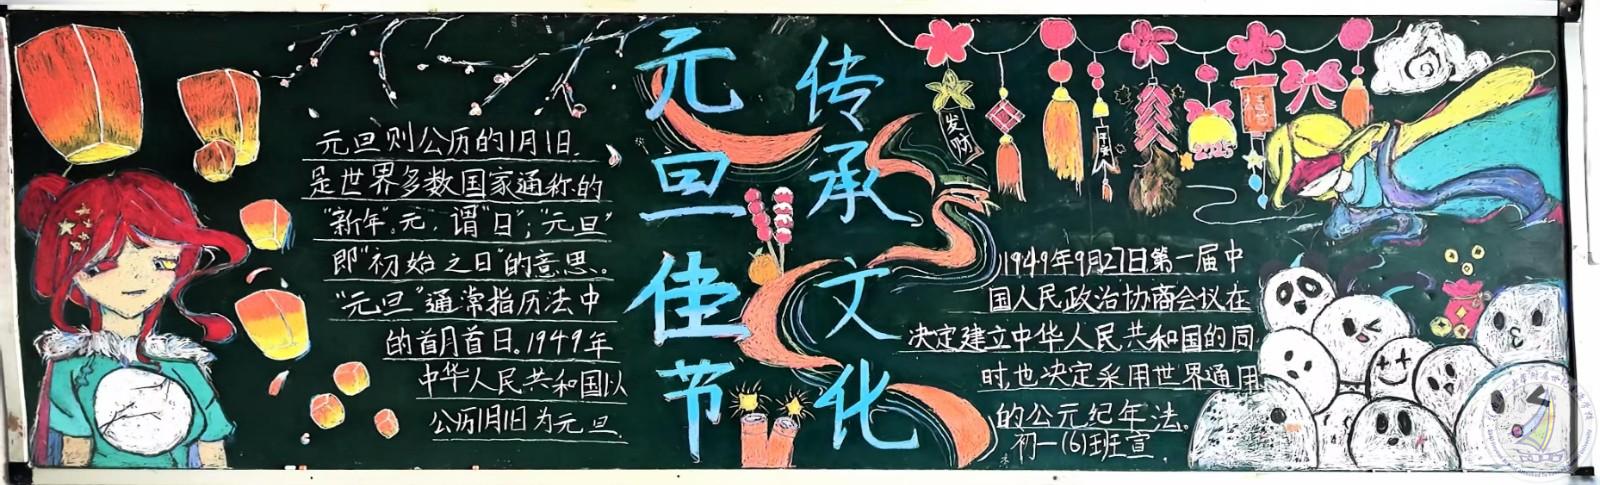 元旦佳节
传承文化
元旦则公历的1月1日.
是世界多数国家通称的
"新年"。元,谓"日";"元旦"
即"初始之日"的意思。
"元旦"通常指历法中
的首月首日。1949年
中华人民共和国以
公历1月1日为元旦.
发财
2025
1949年9月27日.第一届中
国人民政治协商会议在
决定建立中华人民共和国的同
时,也决定采用世界通用
的公元纪年法。
初一(6)班宣